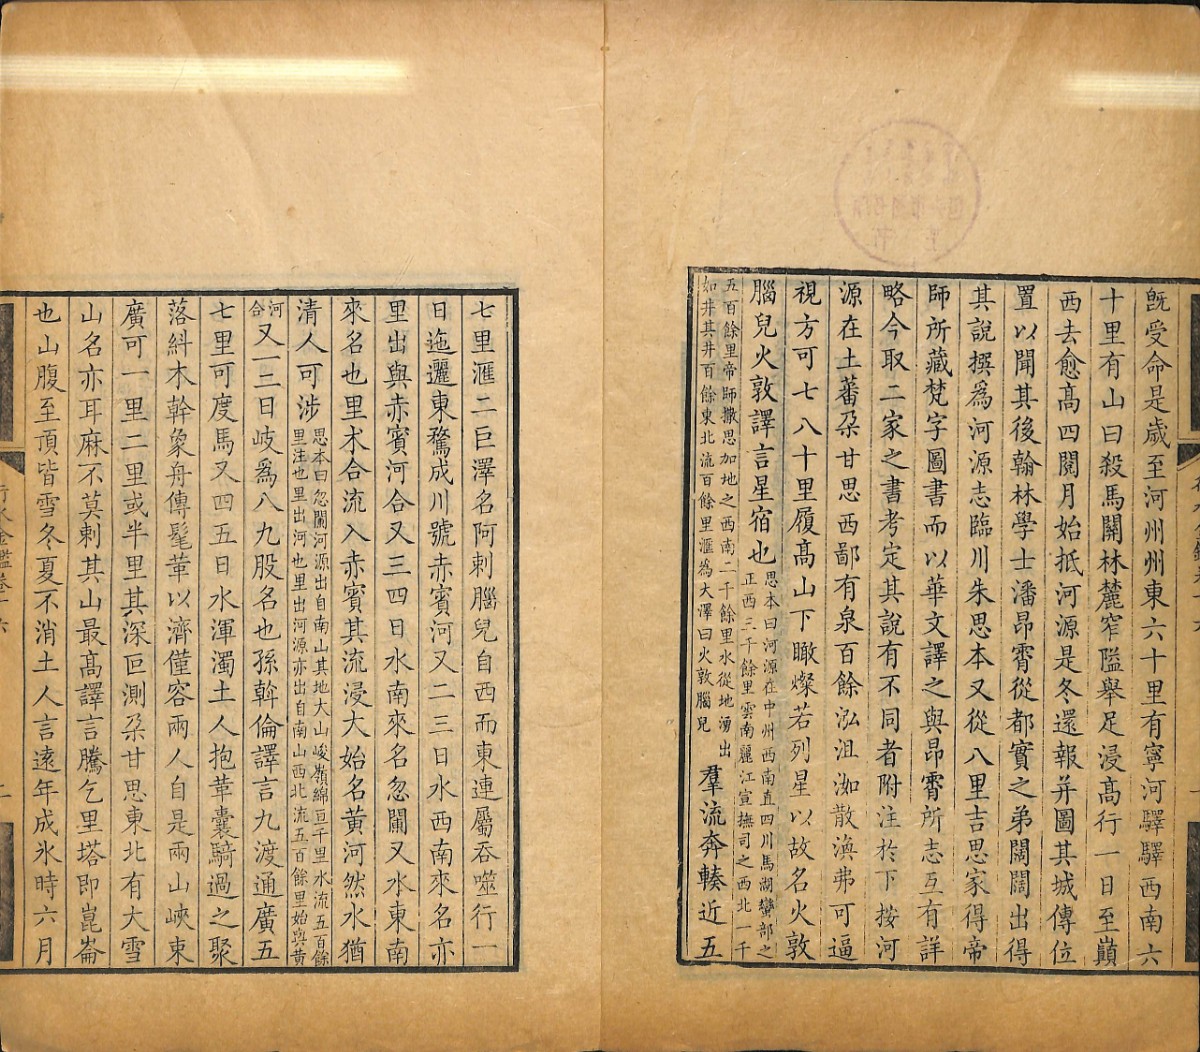 旣受命是歲至河州州東六十里有寧河驛驛西南六
十里有山曰殺馬關林麓窄隘舉足浸高行一日至巔
西去愈高四閱月始抵河源是冬還報并圖其城傳位
置以聞其後翰林學士潘昂霄從都實之弟闊闊出得
其說撰爲河源志臨川朱思本又從八里吉思家得帝
師所藏梵字圖書而以華文譯之與昂霄所志互有詳
略今取二家之書考定其說有不同者附注於下按河
源在土蕃朶甘思西鄙有泉百餘泓沮洳散渙弗可逼
視方可七八十里履高山下瞰燦若列星以故名火敦
腦兒火敦譯言星宿也思本曰河源在中州西南直四川馬湖蠻部之正西三千餘里雲南麗江宣撫司之西北一千
五百餘里帝師撒思加地之西南二千餘里水從地湧出如井其井百餘東北流百餘里滙爲大澤曰火敦腦兒羣流奔輳近五
七里滙二巨澤名阿剌腦兒自西而東連屬呑噬行一
日迤邐東騖成川號赤賓河又二三日水西南來名亦
里出與赤賓河合又三四日水南來名忽闌又水東南
來名也里朮合流入赤賓其流浸大始名黃河然水猶
清人可涉思本曰忽闌河源出自南山其地大山峻嶺綿亘千里水流五百餘里注也里出河也里出河源亦出自南山西北流五百餘里始與黃
河合又一二日岐爲八九股名也孫斡倫譯言九渡通廣五
七里可度馬又四五日水渾濁土人抱革囊騎過之聚
落糾木幹象舟傅髦革以濟僅容兩人自是兩山峽束
廣可一里二里或半里其深叵測朶甘思東北有大雪
山名亦耳麻不莫剌其山最高譯言騰乞里塔即崑崙
也山腹至頂皆雪冬夏不消土人言遠年成氷時六月
行水金鑑卷十六